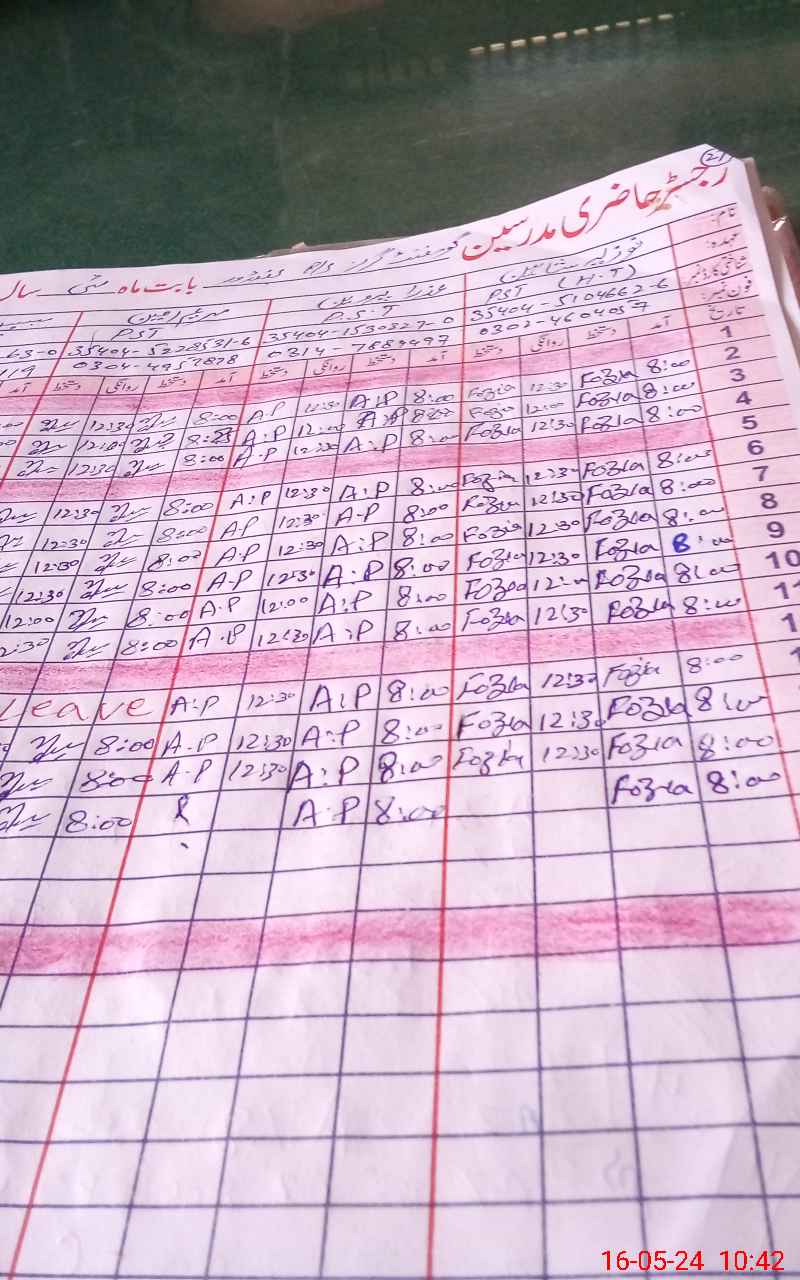 27
رجسٹر حاضری مدرسین گورنمنٹ گرلز P/S بابت ماہ مئی سال
نام: فوزیہ شاہین عذرا پروین
عہدہ: PST (H.T) P.S.T PST
شناختی کارڈ نمبر 35404-5104662-6 35404-1530327-0 35404-5278531-6 63-0
فون نمبر: 0302-4604057 0314-7689497 0304-4957878 119
تاریخ آمد دستخط روانگی دستخط آمد دستخط روانگی دستخط آمد دستخط روانگی دستخط آمد
1
2 8:00 Fozia 12:30 Fozia 8:00 A:P 12:30 A.P 8:00 12:30
3 8:00 Fozia 12:00 Fozia 8:00 A:P 12:00 A:P 12:00
4 8:00 Fozia 12:30 Fozia 8:00 A:P 12:30 A:P 8:00 12:30
5
6 8:00 Fozia 12:30 Fozia 8:00 A:P 12:30 A:P 8:00 12:30
7 8:00 Fozia 12:30 Fozia 8:00 A-P 12:30 A.P 8:00 12:30
8 8:00 Fozia 12:30 Fozia 8:00 A:P 12:30 A.P 8:00 12:30
9 8:00 Fozia 12:30 Fozia 8:00 A:P 12:30 A.P 8:00 12:30
10 8:00 Fozia 12:00 Fozia 8:00 A:P 12:00 A.P 8:00 12:00
11 8:00 Fozia 12:30 Fozia 8:00 A:P 12:30 A.P 8:00 2:30
1
1 8:00 Fozia 12:30 Fozia 8:00 A:P 12:30 A:P Leave
8:00 Fozia 12:30 Fozia 8:00 A:P 12:30 A.P 8:00
8:00 Fozia 12:30 Fozia 8:00 A:P 12:30 A.P 8:00
8:00 Fozia 8:00 A:P 8:00
16-05-24 10:42